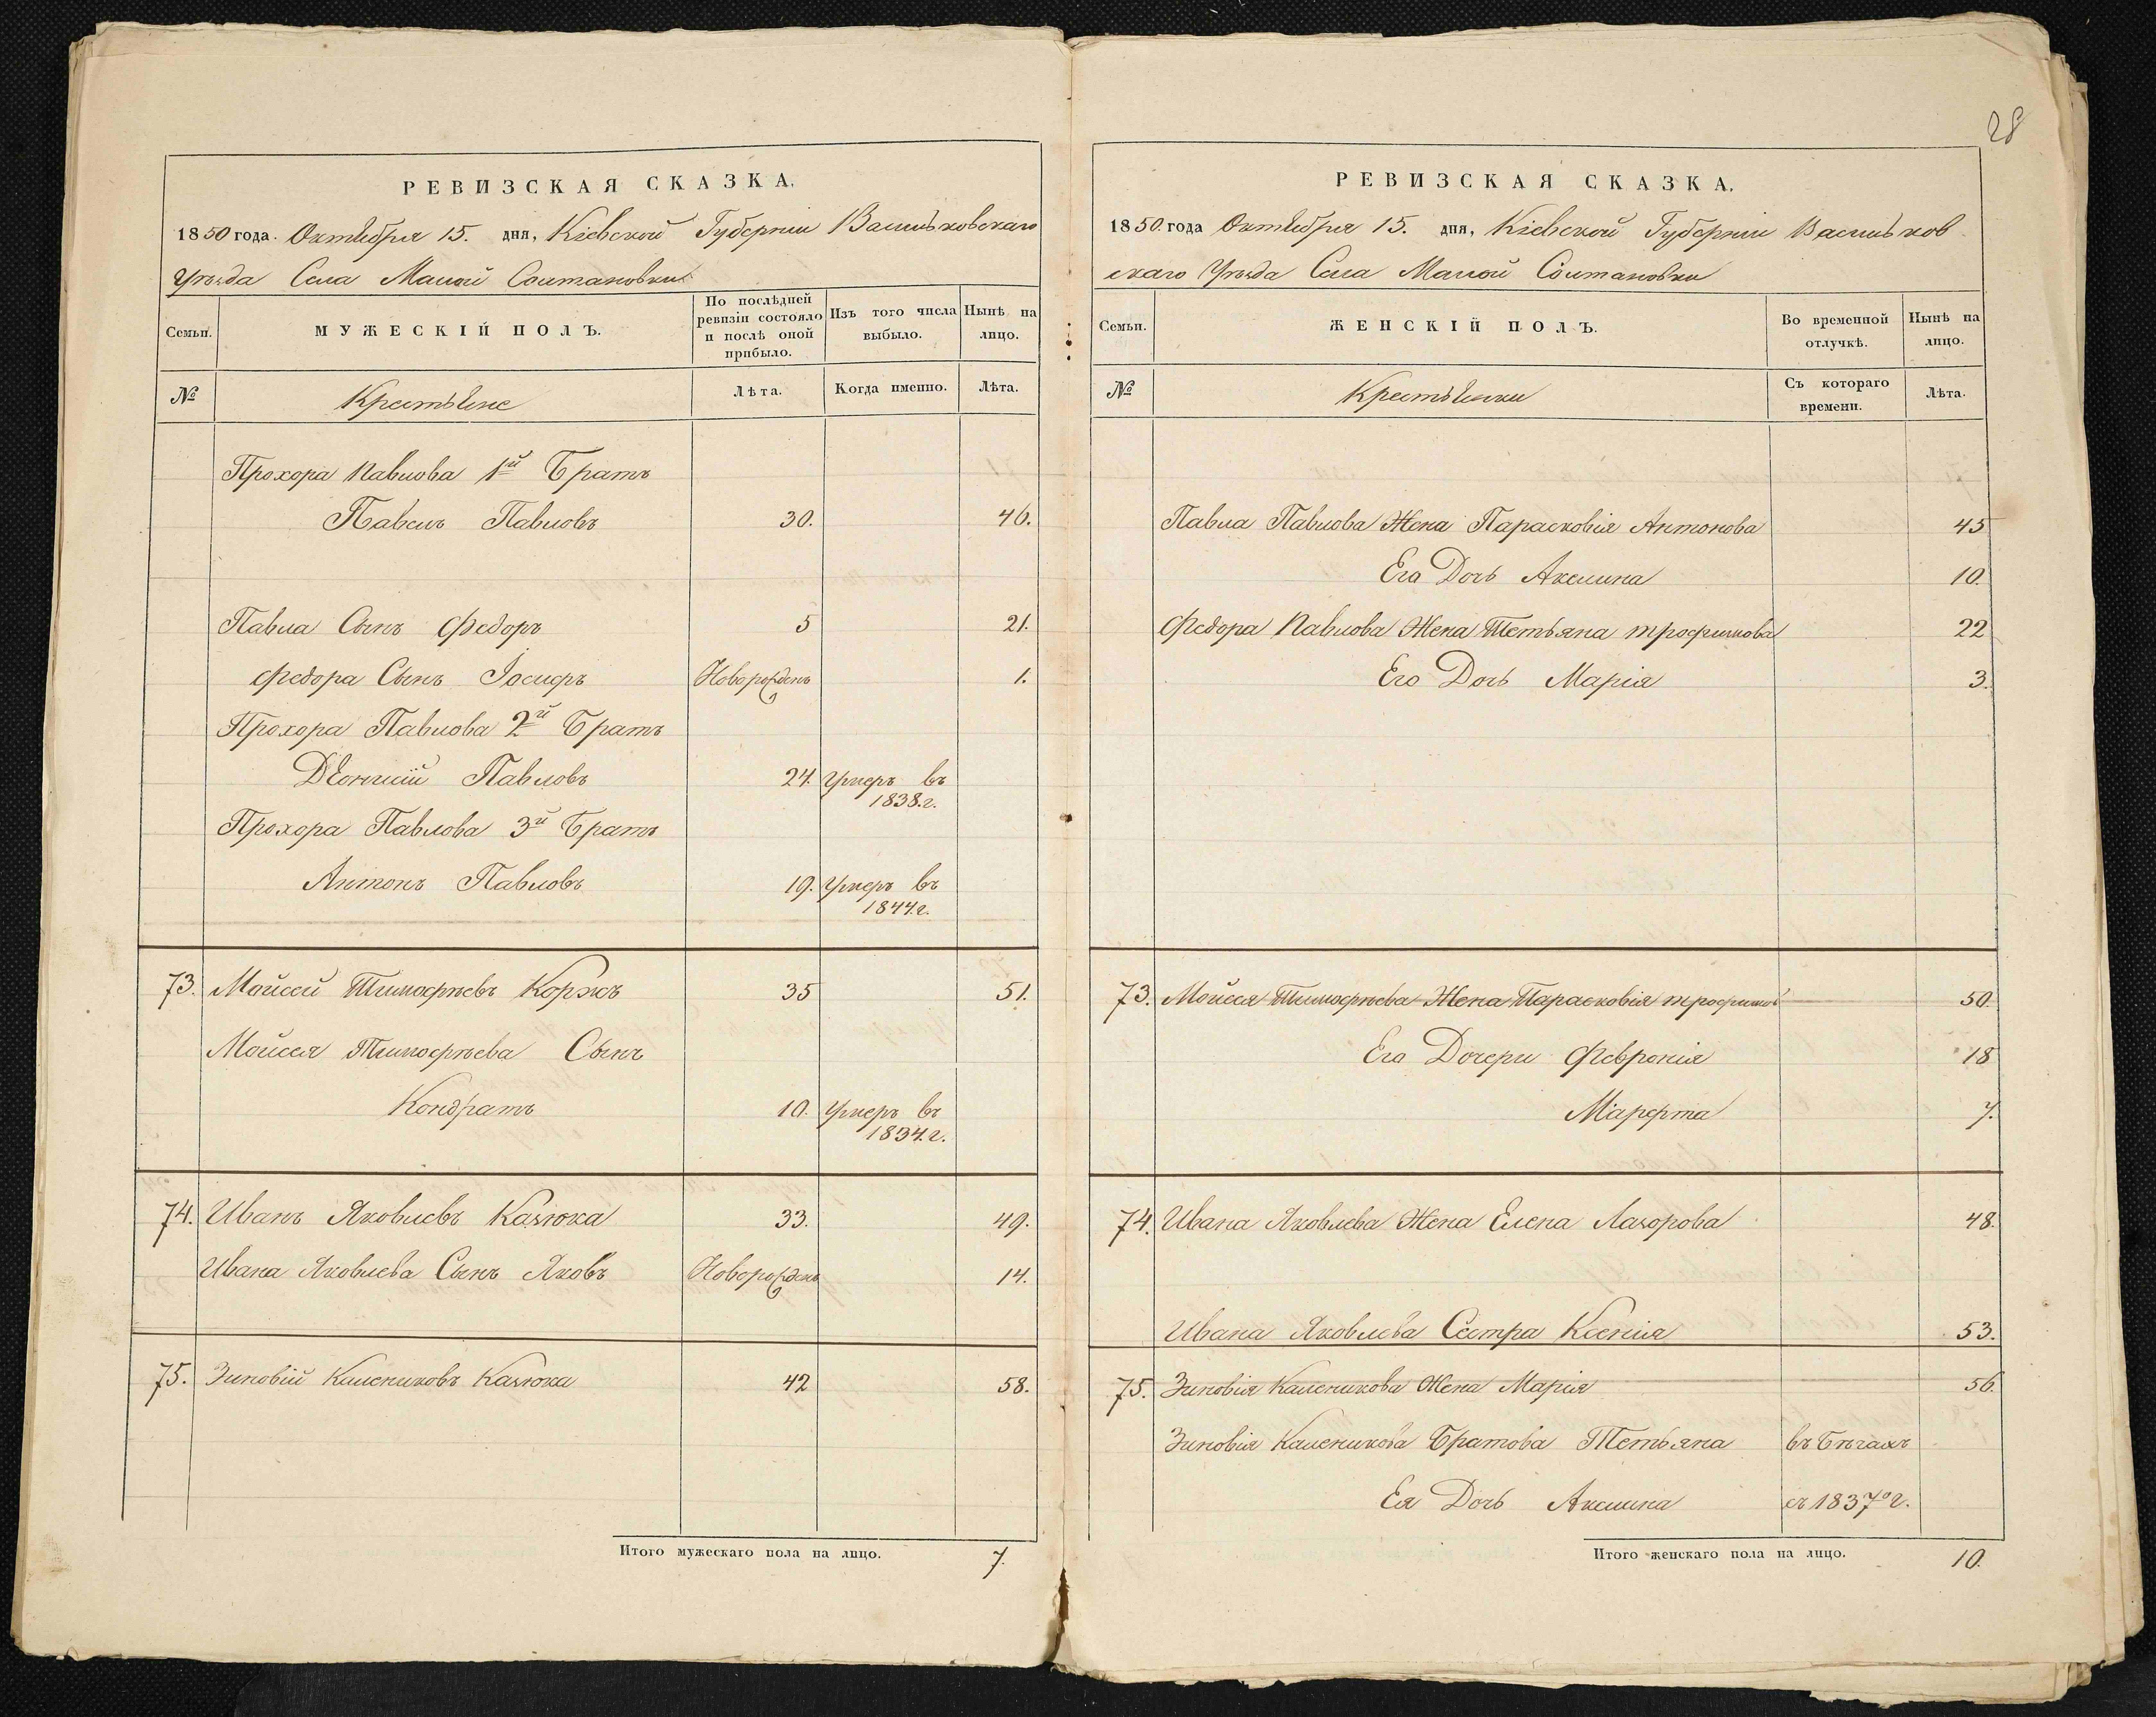 28
РЕВИЗСКАЯ СКАЗКА.
1850 года. Октября 15. дня, Кіевской Губерніи Васильковскаго
Уѣзда Села Малой Солтановки
Семьи.
МУЖЕСКІЙ ПОЛЪ.
По послѣдней ревизіи состояло и послѣ оной прибыло.
Изъ того числа выбыло.
Нынѣ на лицо.
№
Крестьяне
Лѣта.
Когда именно.
Лѣта.
Прохора Павлова 1й Братъ
Павелъ Павловъ 30. 46.
Павла Сынъ Федоръ 5 21.
Федора Сынъ Іосифъ Новорожденъ 1.
Прохора Павлова 2й Братъ
Діонисій Павловъ 24. Умеръ въ
1838.г.
Прохора Павлова 3й Братъ
Антонъ Павловъ 19. Умеръ въ
1844.г.
73. Мойсей Тимофѣевъ Коржъ 35 51.
Мойсея Тимофѣева Сынъ
Кондратъ 10. Умеръ въ
1834.г.
74. Иванъ Яковлевъ Казюка 33. 49.
Ивана Яковлева Сынъ Яковъ Новорожденъ 14.
75. Зиновій Калениковъ Казюка 42 58.
Итого мужескаго пола на лицо. 7.
РЕВИЗСКАЯ СКАЗКА.
1850.года Октября 15. дня, Кіевской Губерніи Васильков
скаго Уѣзда Села Малой Солтановки
Семьи.
ЖЕНСКІЙ ПОЛЪ.
Во временной отлучкѣ.
Нынѣ на лицо.
№
Крестьянки
Съ котораго времени.
Лѣта.
Павла Павлова Жена Парасковія Антонова 45
Его Дочь Акилина 10.
Федора Павлова Жена Тетьяна Трофимова 22
Его Дочь Марія 3.
73. Мойсея Тимофѣева Жена Парасковія Трофимов 50.
Его Дочери Февронія 18
Марфта 7.
74. Ивана Яковлева Жена Елена Лазорова 48.
Ивана Яковлева Сестра Ксенія 53.
75. Зиновія Каленикова Жена Марія 56.
Зиновія Каленикова Братова Тетьяна въ Бѣгахъ
Ея Дочь Акилина съ 1837го г.
Итого женскаго пола на лицо. 10.